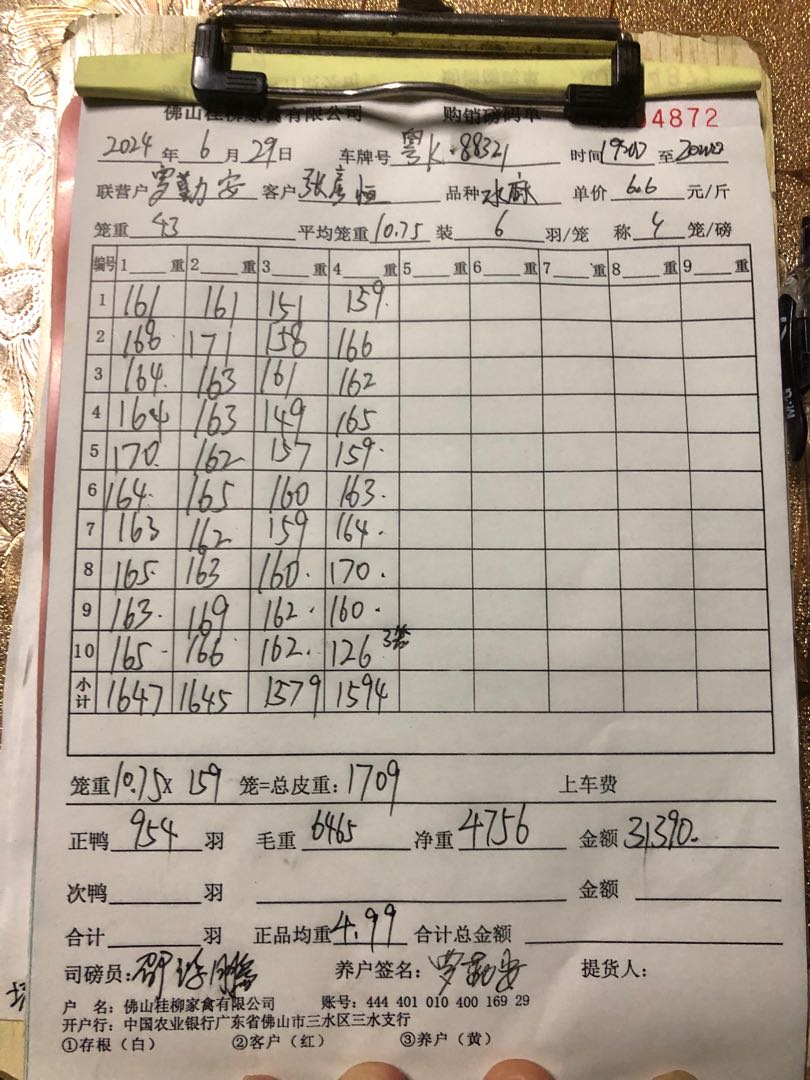 佛山桂柳家禽有限公司 购销磅码单 4872
2024 年 6 月 29 日 车牌号 粤K·88321 时间 19:00 至
联营户 罗勤安 客户 张彦恒 品种 水麻 单价 6.6 元/斤
笼重 43 平均笼重 10.75 装 6 羽/笼 称 4 笼/磅
编号 1 重 2 重 3 重 4 重 5 重 6 重 7 重 8 重 9 重
1 161 161 151 159.
2 168 171 158 166
3 164. 163 161 162
4 164 163 149 165
5 170. 162 157 159.
6 164. 165 160 163.
7 163 162 159 164.
8 165. 163 160. 170.
9 163. 169 162. 160.
10 165. 166 162. 126 3笼
小计 1647 1645 1579 1594
笼重 10.75 X 159 笼=总皮重: 1709 上车费
正鸭 954 羽 毛重 6465 净重 4756 金额 31390.
次鸭 羽 金额
合计 羽 正品均重 4.99 合计总金额
司磅员: 养户签名: 罗勤安 提货人:
户 名: 佛山桂柳家禽有限公司 账号: 444 401 010 400 169 29
开户行: 中国农业银行广东省佛山市三水区三水支行
①存根（白） ②客户（红） ③养户（黄）